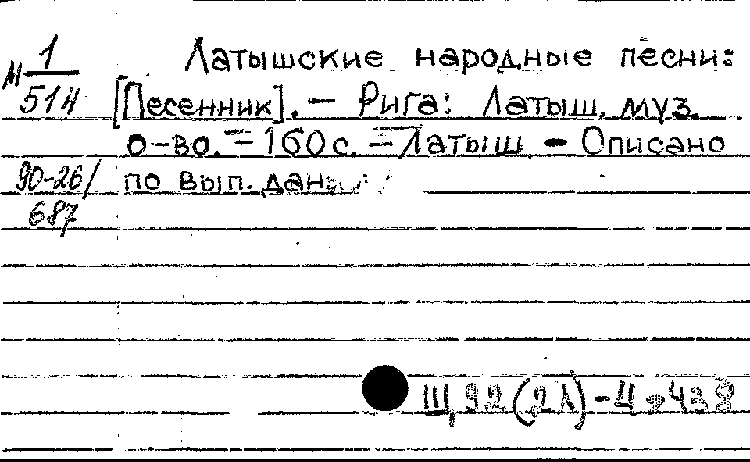 М 1/514
Латышские народные песни:
[Песенник]. — Рига: Латыш. муз.
о-во. — 160 с. — Латыш — Описано
90-26/687
по вып. данным
Щ92(2Л)-4,438